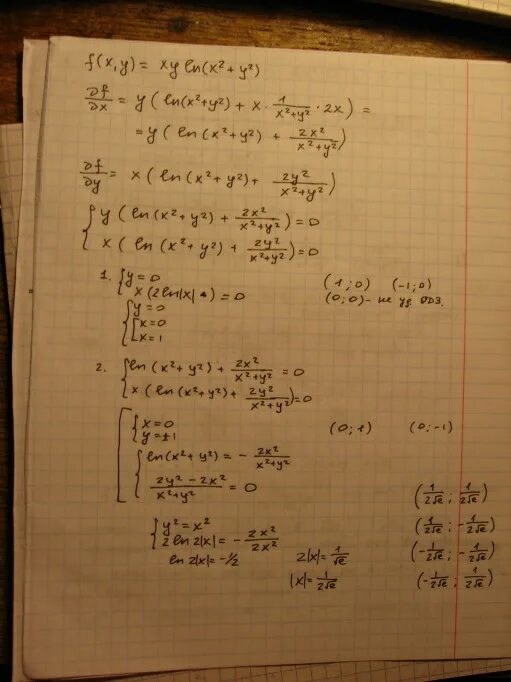 f(x,y) = xy ln(x²+y²)
∂f/∂x = y( ln(x²+y²) + x · 1/(x²+y²) · 2x) =
= y( ln(x²+y²) + 2x²/(x²+y²))
∂f/∂y = x( ln(x²+y²) + 2y²/(x²+y²))
{ y( ln(x²+y²) + 2x²/(x²+y²)) = 0
x( ln(x²+y²) + 2y²/(x²+y²)) = 0
1. { y = 0 (1;0) (-1;0)
x(2ln|x| ) = 0 (0;0) - не уд. ОДЗ.
{ y = 0
[ x = 0
x = 1
2. { ln(x²+y²) + 2x²/(x²+y²) = 0
x( ln(x²+y²) + 2y²/(x²+y²)) = 0
[ { x = 0 (0;1) (0;-1)
y = ±1
{ ln(x²+y²) = - 2x²/(x²+y²)
(2y² - 2x²)/(x²+y²) = 0 (1/(2√e) ; 1/(2√e))
{ y² = x² (1/(2√e) ; -1/(2√e))
2 ln 2|x| = - 2x²/2x²
ln 2|x| = -1/2 2|x| = 1/√e (-1/(2√e) ; -1/(2√e))
|x| = 1/(2√e) (-1/(2√e) ; 1/(2√e))